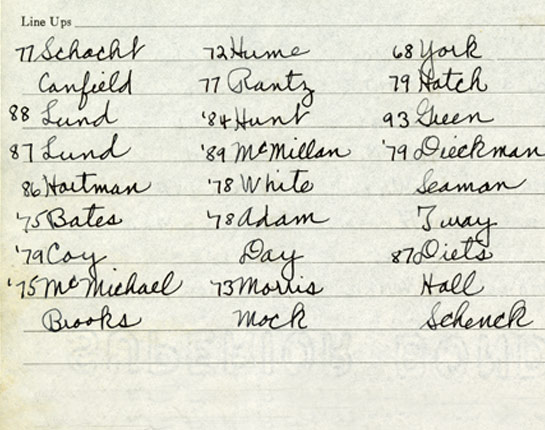 Line Ups
77 Schacht 72 Hume 68 York
Canfield 77 Rantz 79 Hatch
88 Lund '84 Hunt 93 Green
87 Lund '89 McMillan '79 Dieckman
86 Hartman '78 White Seaman
'75 Bates '78 Adam Tway
'79 Coy Day 87 Diets
'75 McMichael '73 Morris Hall
Brooks Mock Schenck